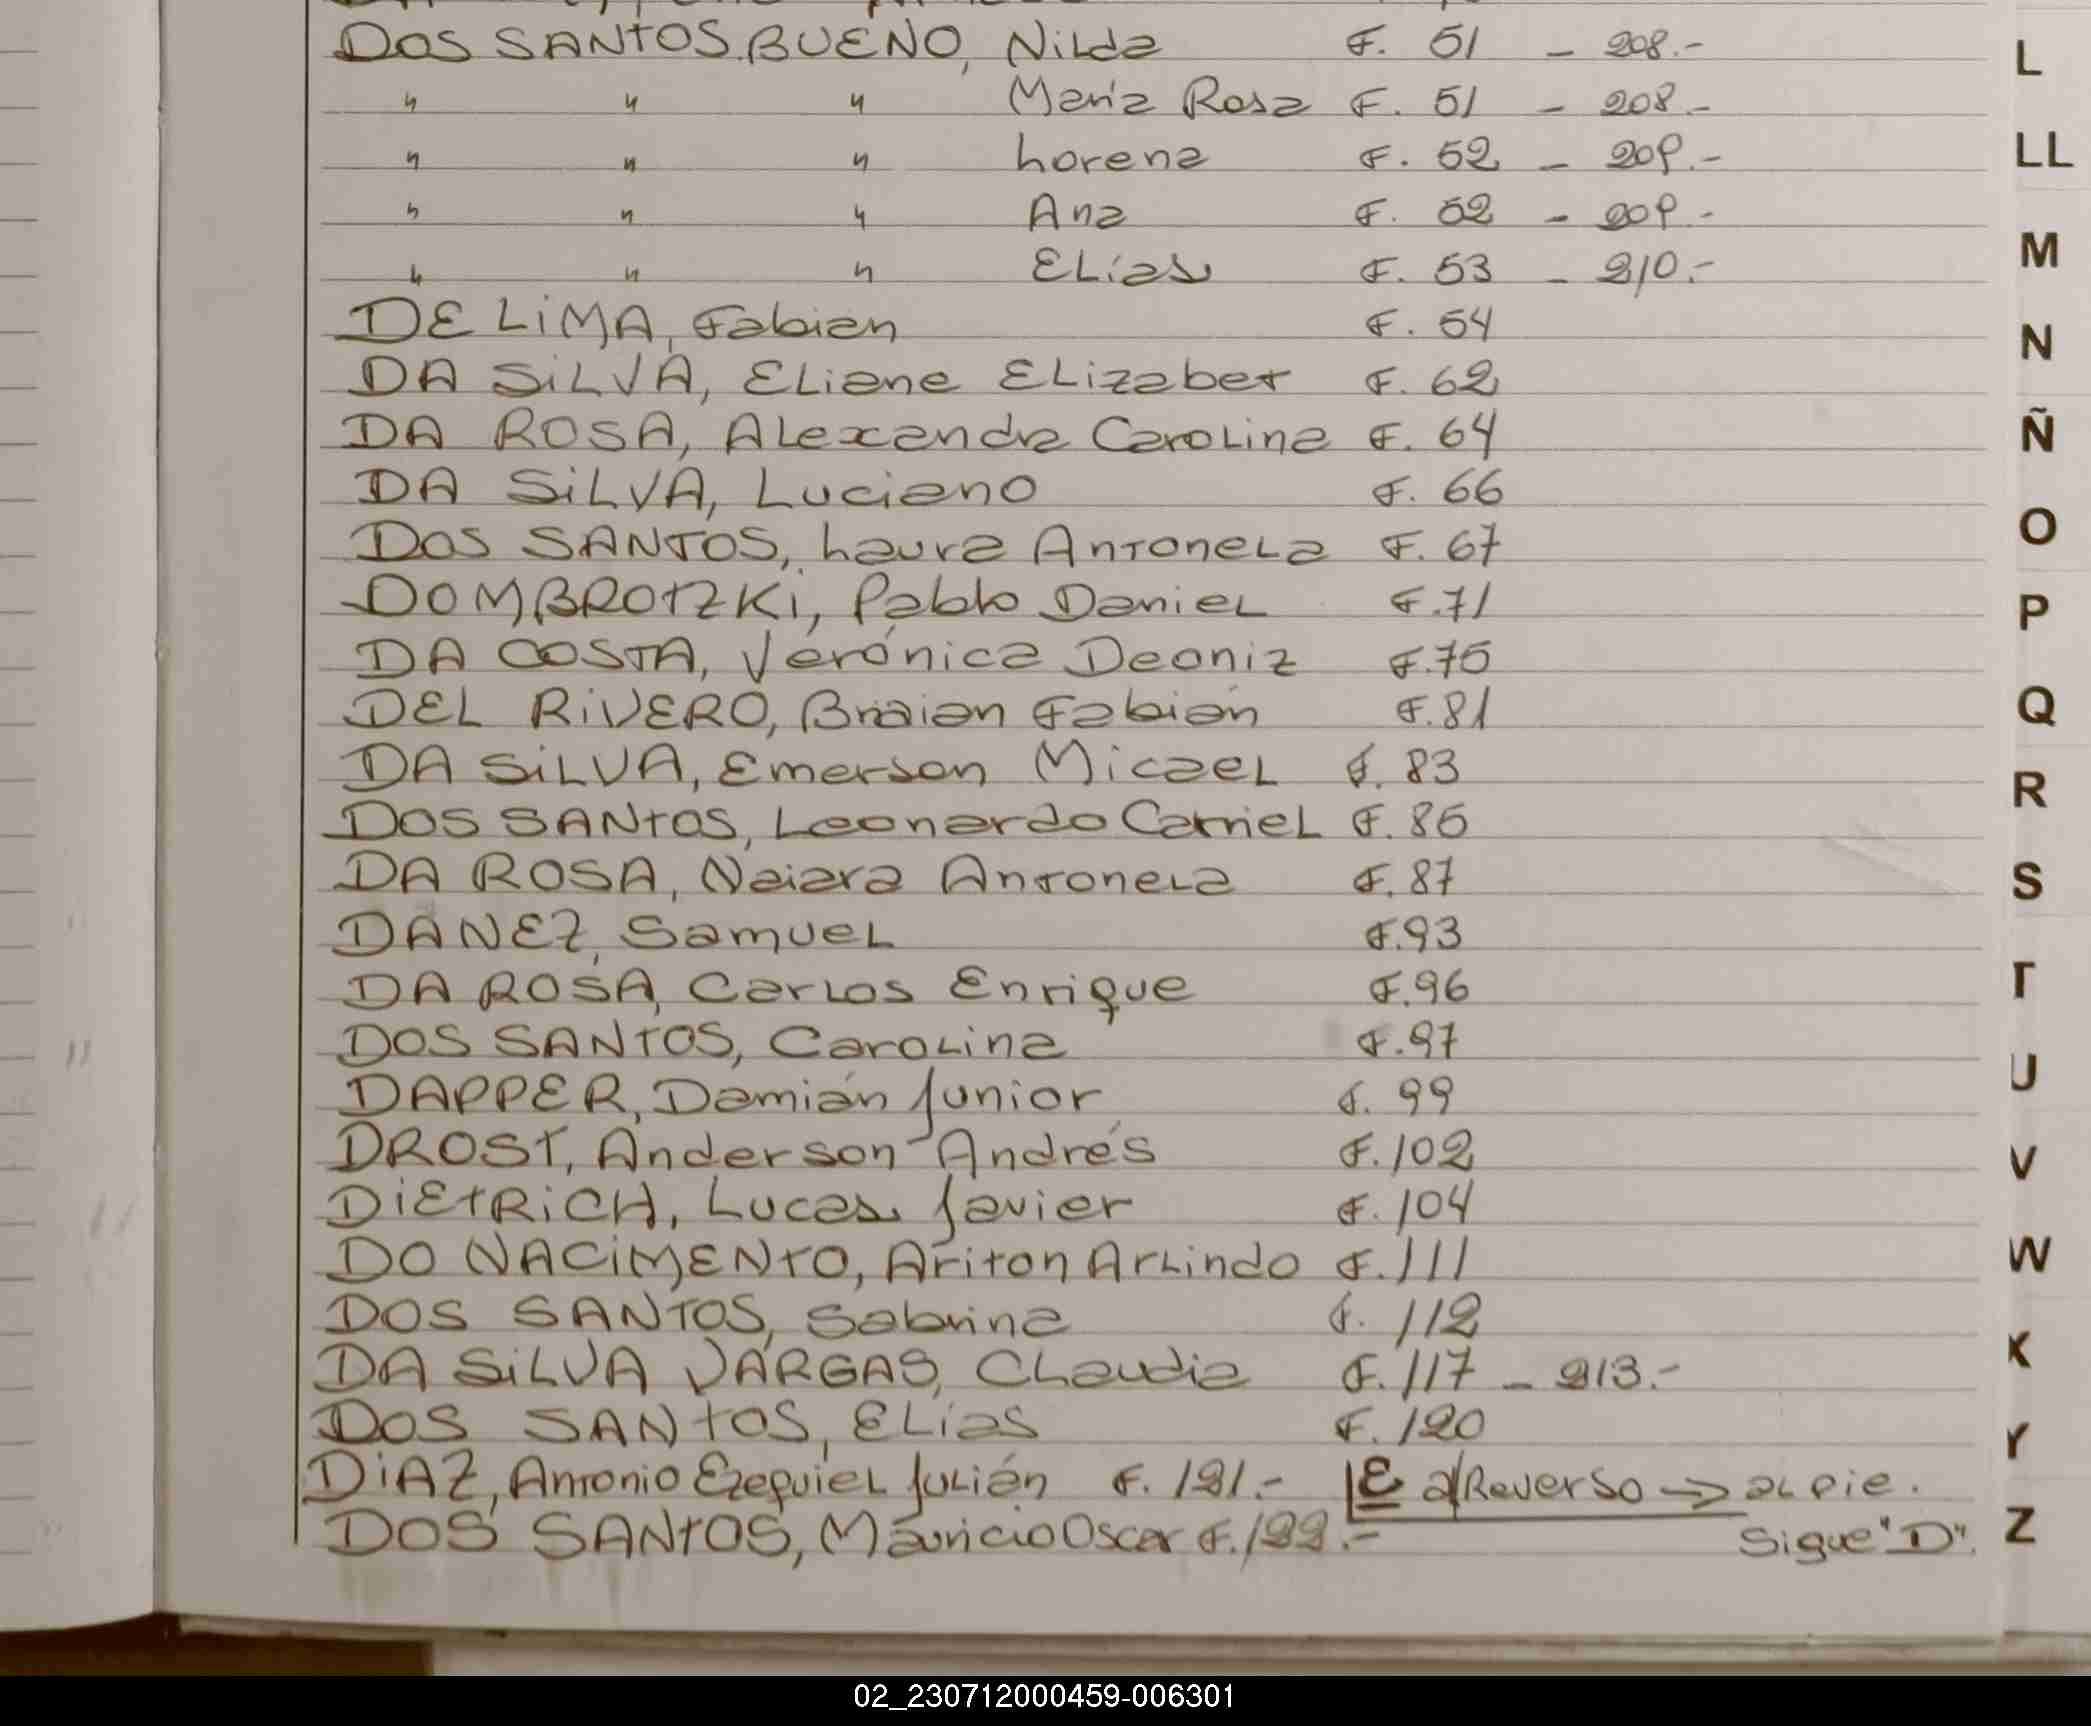 DOS SANTOS BUENO, Nilda F. 51 - 208.-
" " " María Rosa F. 51 - 208.-
" " " Lorena F. 52 - 209.-
" " " Ana F. 52 - 209.-
" " " Elías F. 53 - 210.-
DE LIMA, Fabian F. 54
DA SILVA, Eliane Elizabet F. 62
DA ROSA, Alexandra Carolina F. 64
DA SILVA, Luciano F. 66
DOS SANTOS, Laura Antonela F. 67
DOMBROTZKI, Pablo Daniel F. 71
DA COSTA, Verónica Deoniz F. 75
DEL RIVERO, Braian Fabián F. 81
DA SILVA, Emerson Micael F. 83
DOS SANTOS, Leonardo Carriel F. 85
DA ROSA, Naiara Antonela F. 87
DANEZ, Samuel F. 93
DA ROSA, Carlos Enrique F. 96
DOS SANTOS, Carolina F. 97
DAPPER, Damián Junior F. 99
DROST, Anderson Andrés F. 102
DIETRICH, Lucas Javier F. 104
DO NACIMENTO, Ariton Arlindo F. 111
DOS SANTOS, Sabrina F. 112
DA SILVA VARGAS, Claudia F. 117 - 213.-
DOS SANTOS, Elías F. 120
DIAZ, Antonio Ezequiel Julián F. 121.- E a/Reverso → al pie.
DOS SANTOS, Mauricio Oscar F. 122.- Sigue "D".
L
LL
M
N
Ñ
O
P
Q
R
S
T
U
V
W
K
Y
Z
02_230712000459-006301